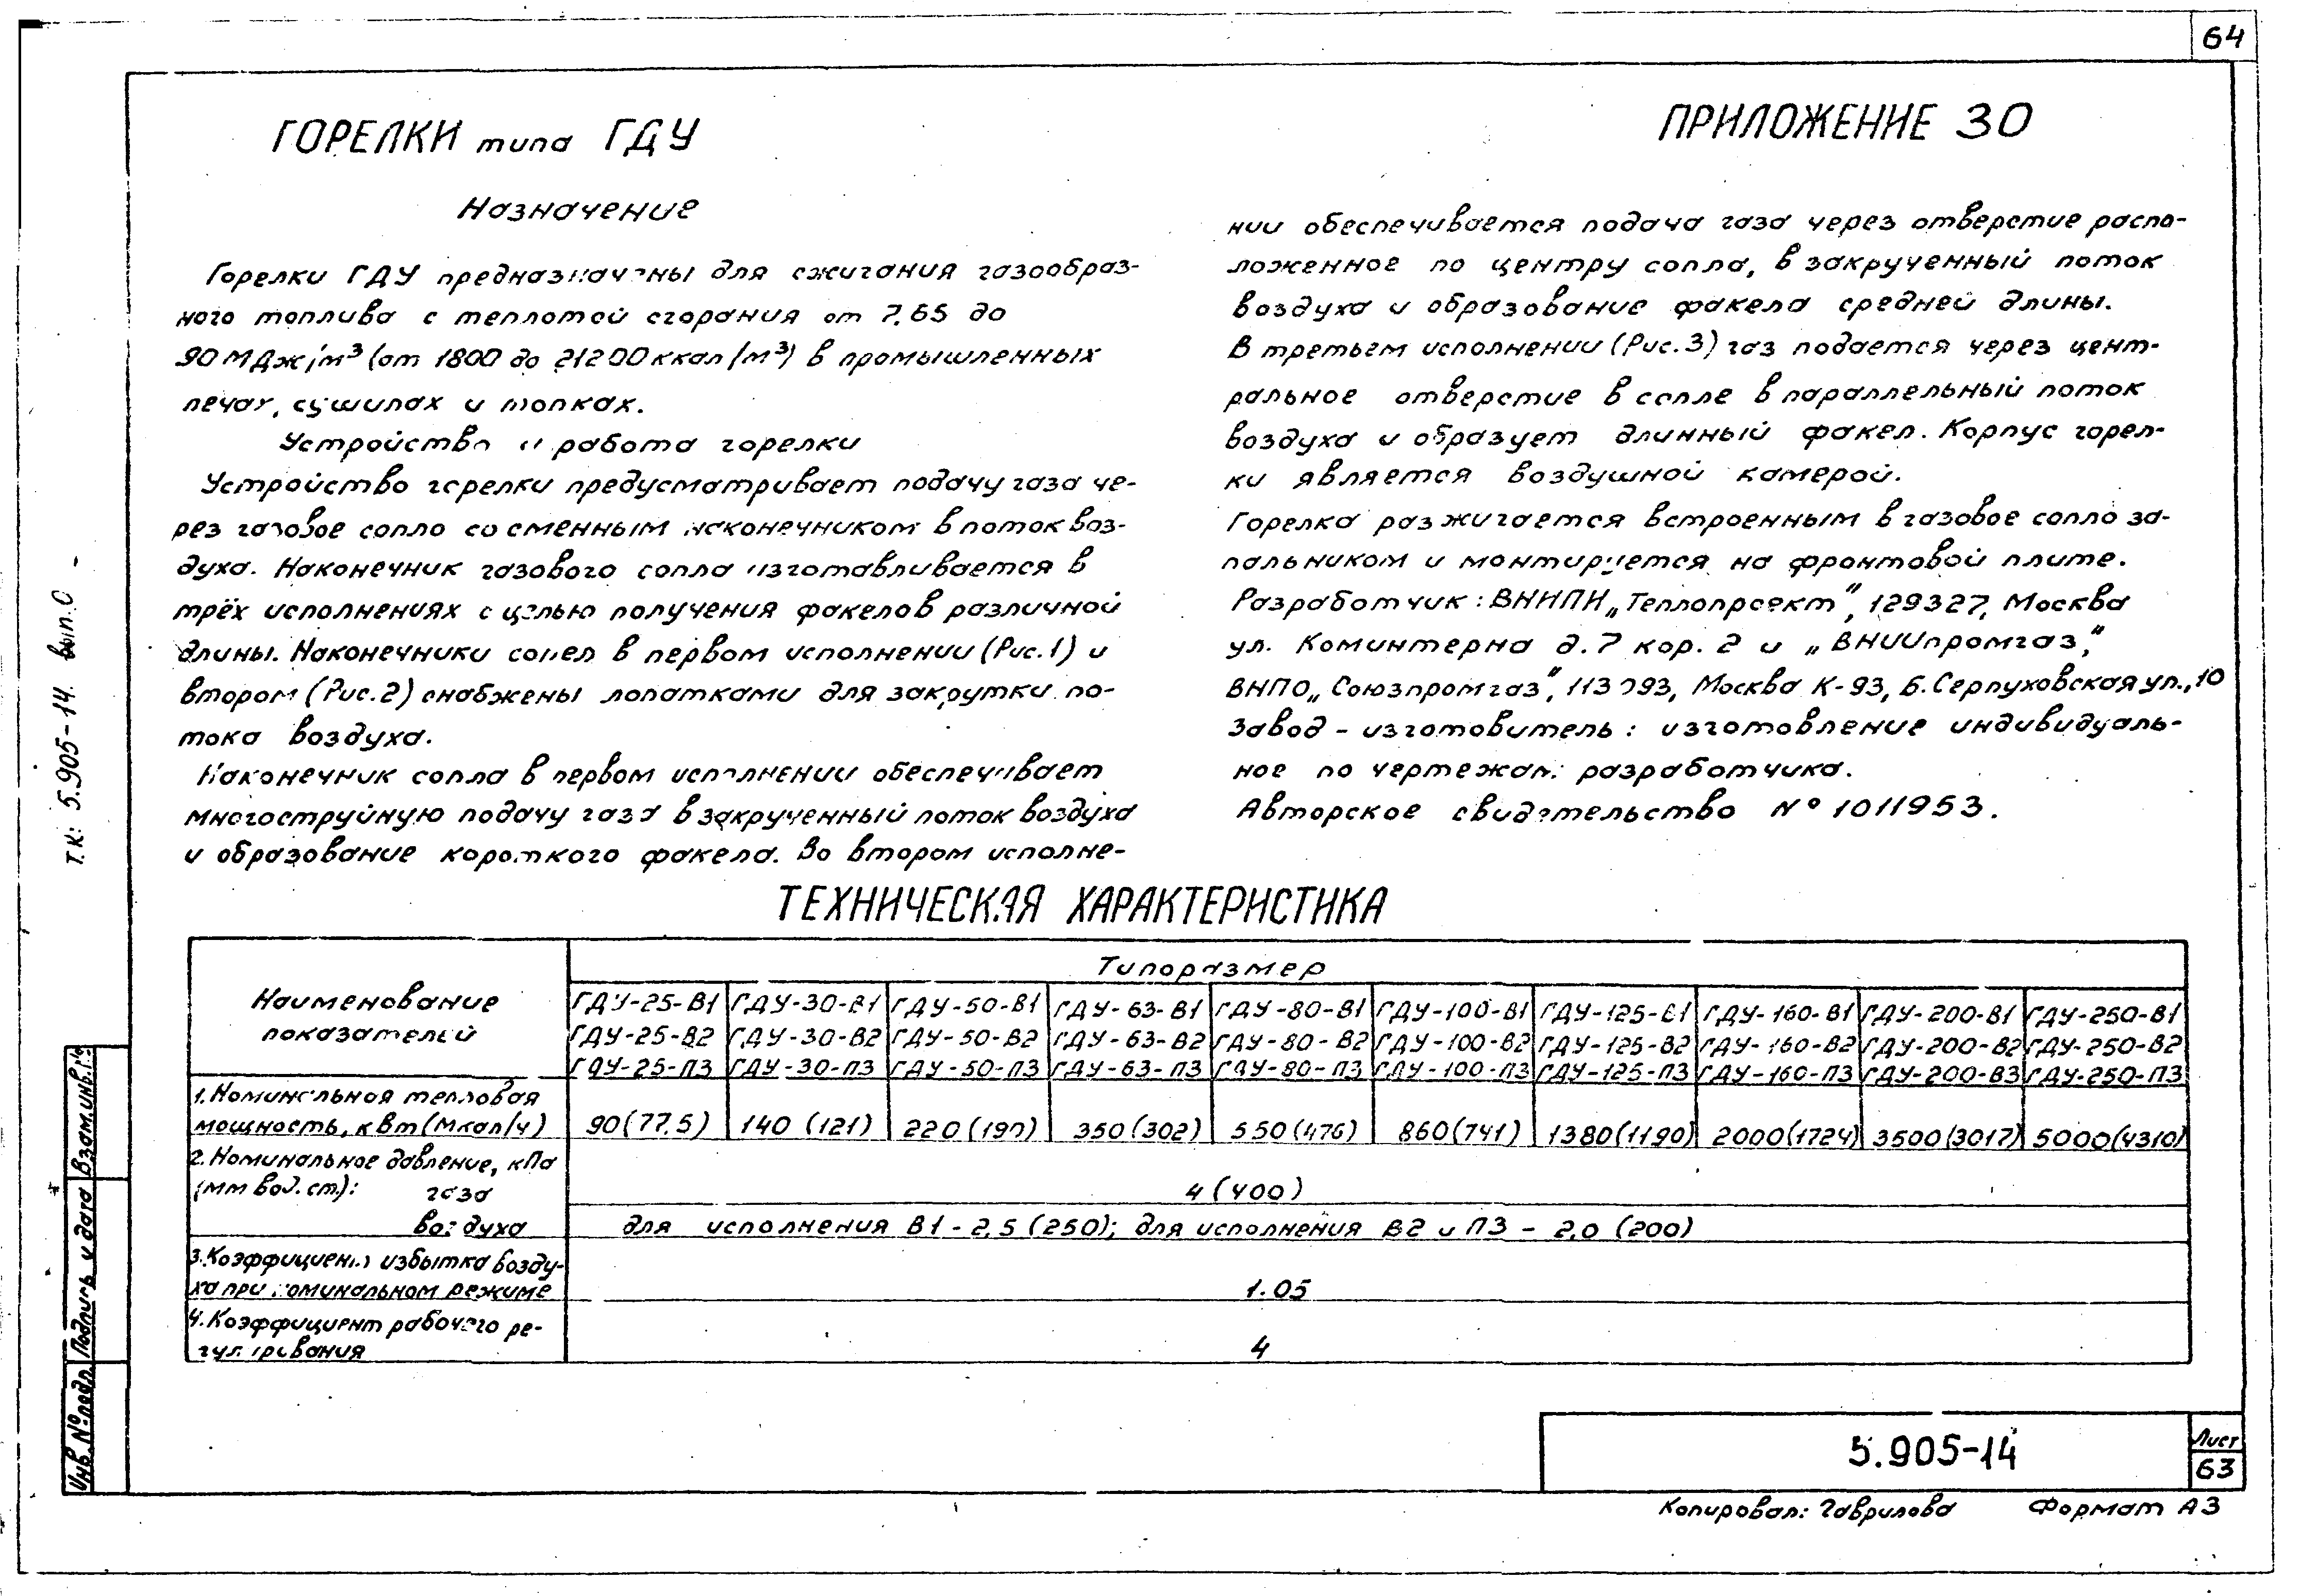 64
ГОРЕЛКИ типа ГДУ
ПРИЛОЖЕНИЕ 30
Назначение
Горелки ГДУ предназначены для сжигания газообраз-
ного топлива с теплотой сгорания от 7,65 до
90 МДж/м³ (от 1800 до 21200 ккал/м³) в промышленных
печах, сушилах и топках.
Устройство и работа горелки
Устройство горелки предусматривает подачу газа че-
рез газовое сопло со сменным наконечником в поток воз-
духа. Наконечник газового сопла изготавливается в
трёх исполнениях с целью получения факелов различной
длины. Наконечники сопел в первом исполнении (Рис.1) и
втором (Рис.2) снабжены лопатками для закрутки по-
тока воздуха.
Наконечник сопла в первом исполнении обеспечивает
многоструйную подачу газа в закрученный поток воздуха
и образование короткого факела. Во втором исполне-
нии обеспечивается подача газа через отверстие распо-
ложенное по центру сопла, в закрученный поток
воздуха и образование факела средней длины.
В третьем исполнении (Рис.3) газ подается через цент-
ральное отверстие в сопле в параллельный поток
воздуха и образует длинный факел. Корпус горел-
ки является воздушной камерой.
Горелка разжигается встроенным в газовое сопло за-
пальником и монтируется на фронтовой плите.
Разработчик: ВНИПИ „Теплопроект", 129327, Москва
ул. Коминтерна д.7 кор. 2 и „ВНИИпромгаз,"
ВНПО „Союзпромгаз", 113093, Москва К-93, Б. Серпуховская ул., 10
Завод-изготовитель: изготовление индивидуаль-
ное по чертежам разработчика.
Авторское свидетельство № 1011953.
ТЕХНИЧЕСКАЯ ХАРАКТЕРИСТИКА
Наименование показателей
Типоразмер
ГДУ-25-В1 ГДУ-30-В1 ГДУ-50-В1 ГДУ-63-В1 ГДУ-80-В1 ГДУ-100-В1 ГДУ-125-В1 ГДУ-160-В1 ГДУ-200-В1 ГДУ-250-В1
ГДУ-25-В2 ГДУ-30-В2 ГДУ-50-В2 ГДУ-63-В2 ГДУ-80-В2 ГДУ-100-В2 ГДУ-125-В2 ГДУ-160-В2 ГДУ-200-В2 ГДУ-250-В2
ГДУ-25-П3 ГДУ-30-П3 ГДУ-50-П3 ГДУ-63-П3 ГДУ-80-П3 ГДУ-100-П3 ГДУ-125-П3 ГДУ-160-П3 ГДУ-200-В3 ГДУ-250-П3
1. Номинальная тепловая
мощность, кВт (Мкал/ч) 90(77.5) 140 (121) 220 (190) 350 (302) 550 (476) 860(741) 1380(1190) 2000(1724) 3500(3017) 5000(4310)
2. Номинальное давление, кПа
(мм вод. ст.): газа 4 (400)
воздуха для исполнения В1 - 2,5 (250); для исполнения В2 и П3 - 2,0 (200)
3. Коэффициент избытка возду-
ха при номинальном режиме 1.05
4. Коэффициент рабочего ре-
гулирования 4
5.905-14
Лист
63
Копировал: Гаврилова Формат А3
Т.К: 5.905-14 вып. 0
Взам.инв.№
Подпись и дата
Инв.№подл.